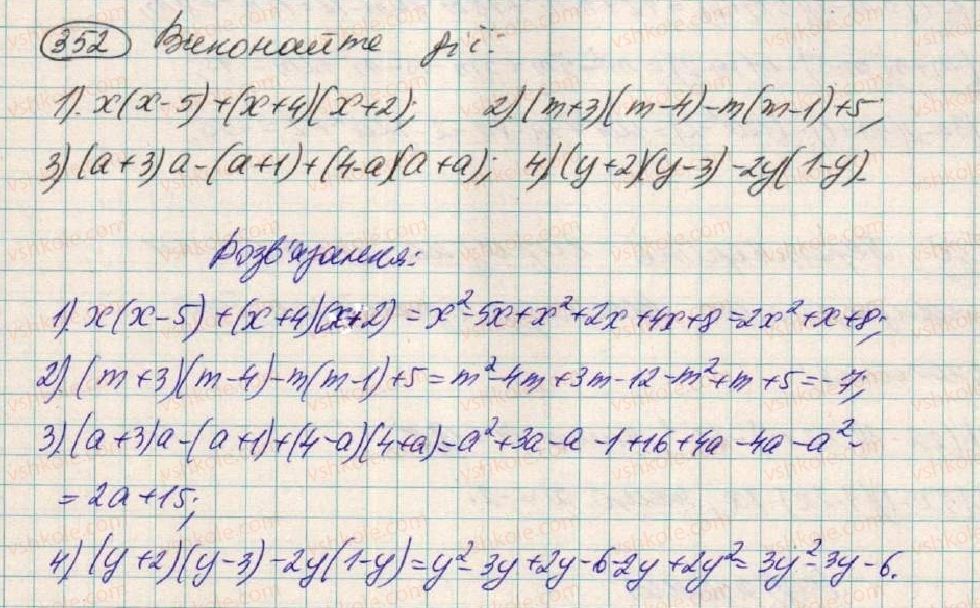 352 Виконайте дії:
1) x(x-5)+(x+4)(x+2); 2) (m+3)(m-4)-m(m-1)+5;
3) (a+3)a-(a+1)+(4-a)(a+a); 4) (y+2)(y-3)-2y(1-y).
Розв'язання:
1) x(x-5)+(x+4)(x+2)=x²-5x+x²+2x+4x+8=2x²+x+8;
2) (m+3)(m-4)-m(m-1)+5=m²-4m+3m-12-m²+m+5=-7;
3) (a+3)a-(a+1)+(4-a)(4+a)=a²+3a-a-1+16+4a-4a-a²-
=2a+15;
4) (y+2)(y-3)-2y(1-y)=y²-3y+2y-6-2y+2y²=3y²-3y-6.
vshkole.com